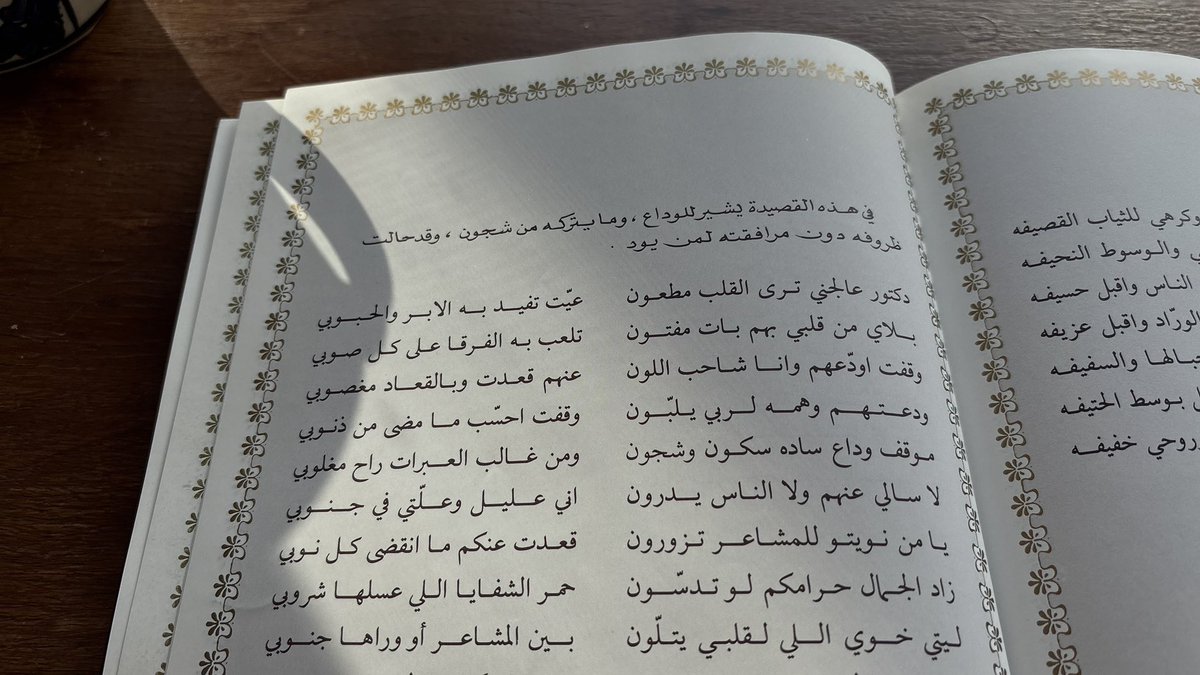 في هذه القصيدة يشير للوداع ، وما يتركه من شجون ، وقد حالت
ظروفه دون مرافقته لمن يود .
دكتور عالجني ترى القلب مطعون عيّت تفيد به الابر والحبوبي
بلاي من قلبي بهم بات مفتون تلعب به الفرقا على كل صوبي
وقفت اودّعهم وانا شاحب اللون عنهم قعدت وبالقعاد مغصوبي
ودعتهم وهمه لربي يلبّون وقفت احسّب ما مضى من ذنوبي
موقف وداع ساده سكون وشجون ومن غالب العبرات راح مغلوبي
لا سالي عنهم ولا الناس يدرون اني عليل وعلّتي في جنوبي
يا من نويتو للمشاعر تزورون قعدت عنكم ما انقضى كل نوبي
زاد الجمال حرامكم لو تدسّون حمر الشفايا اللي عسلها شروبي
ليتي خوي اللي لقلبي يتلّون بين المشاعر أو وراها جنوبي
وكرهي للثياب القصيفه
والوسوط النحيفه
الناس واقبل حسيفه
الورّاد واقبل عزيفه
حبالها والسفيفه
بوسط الحتيفه
روحي خفيفه